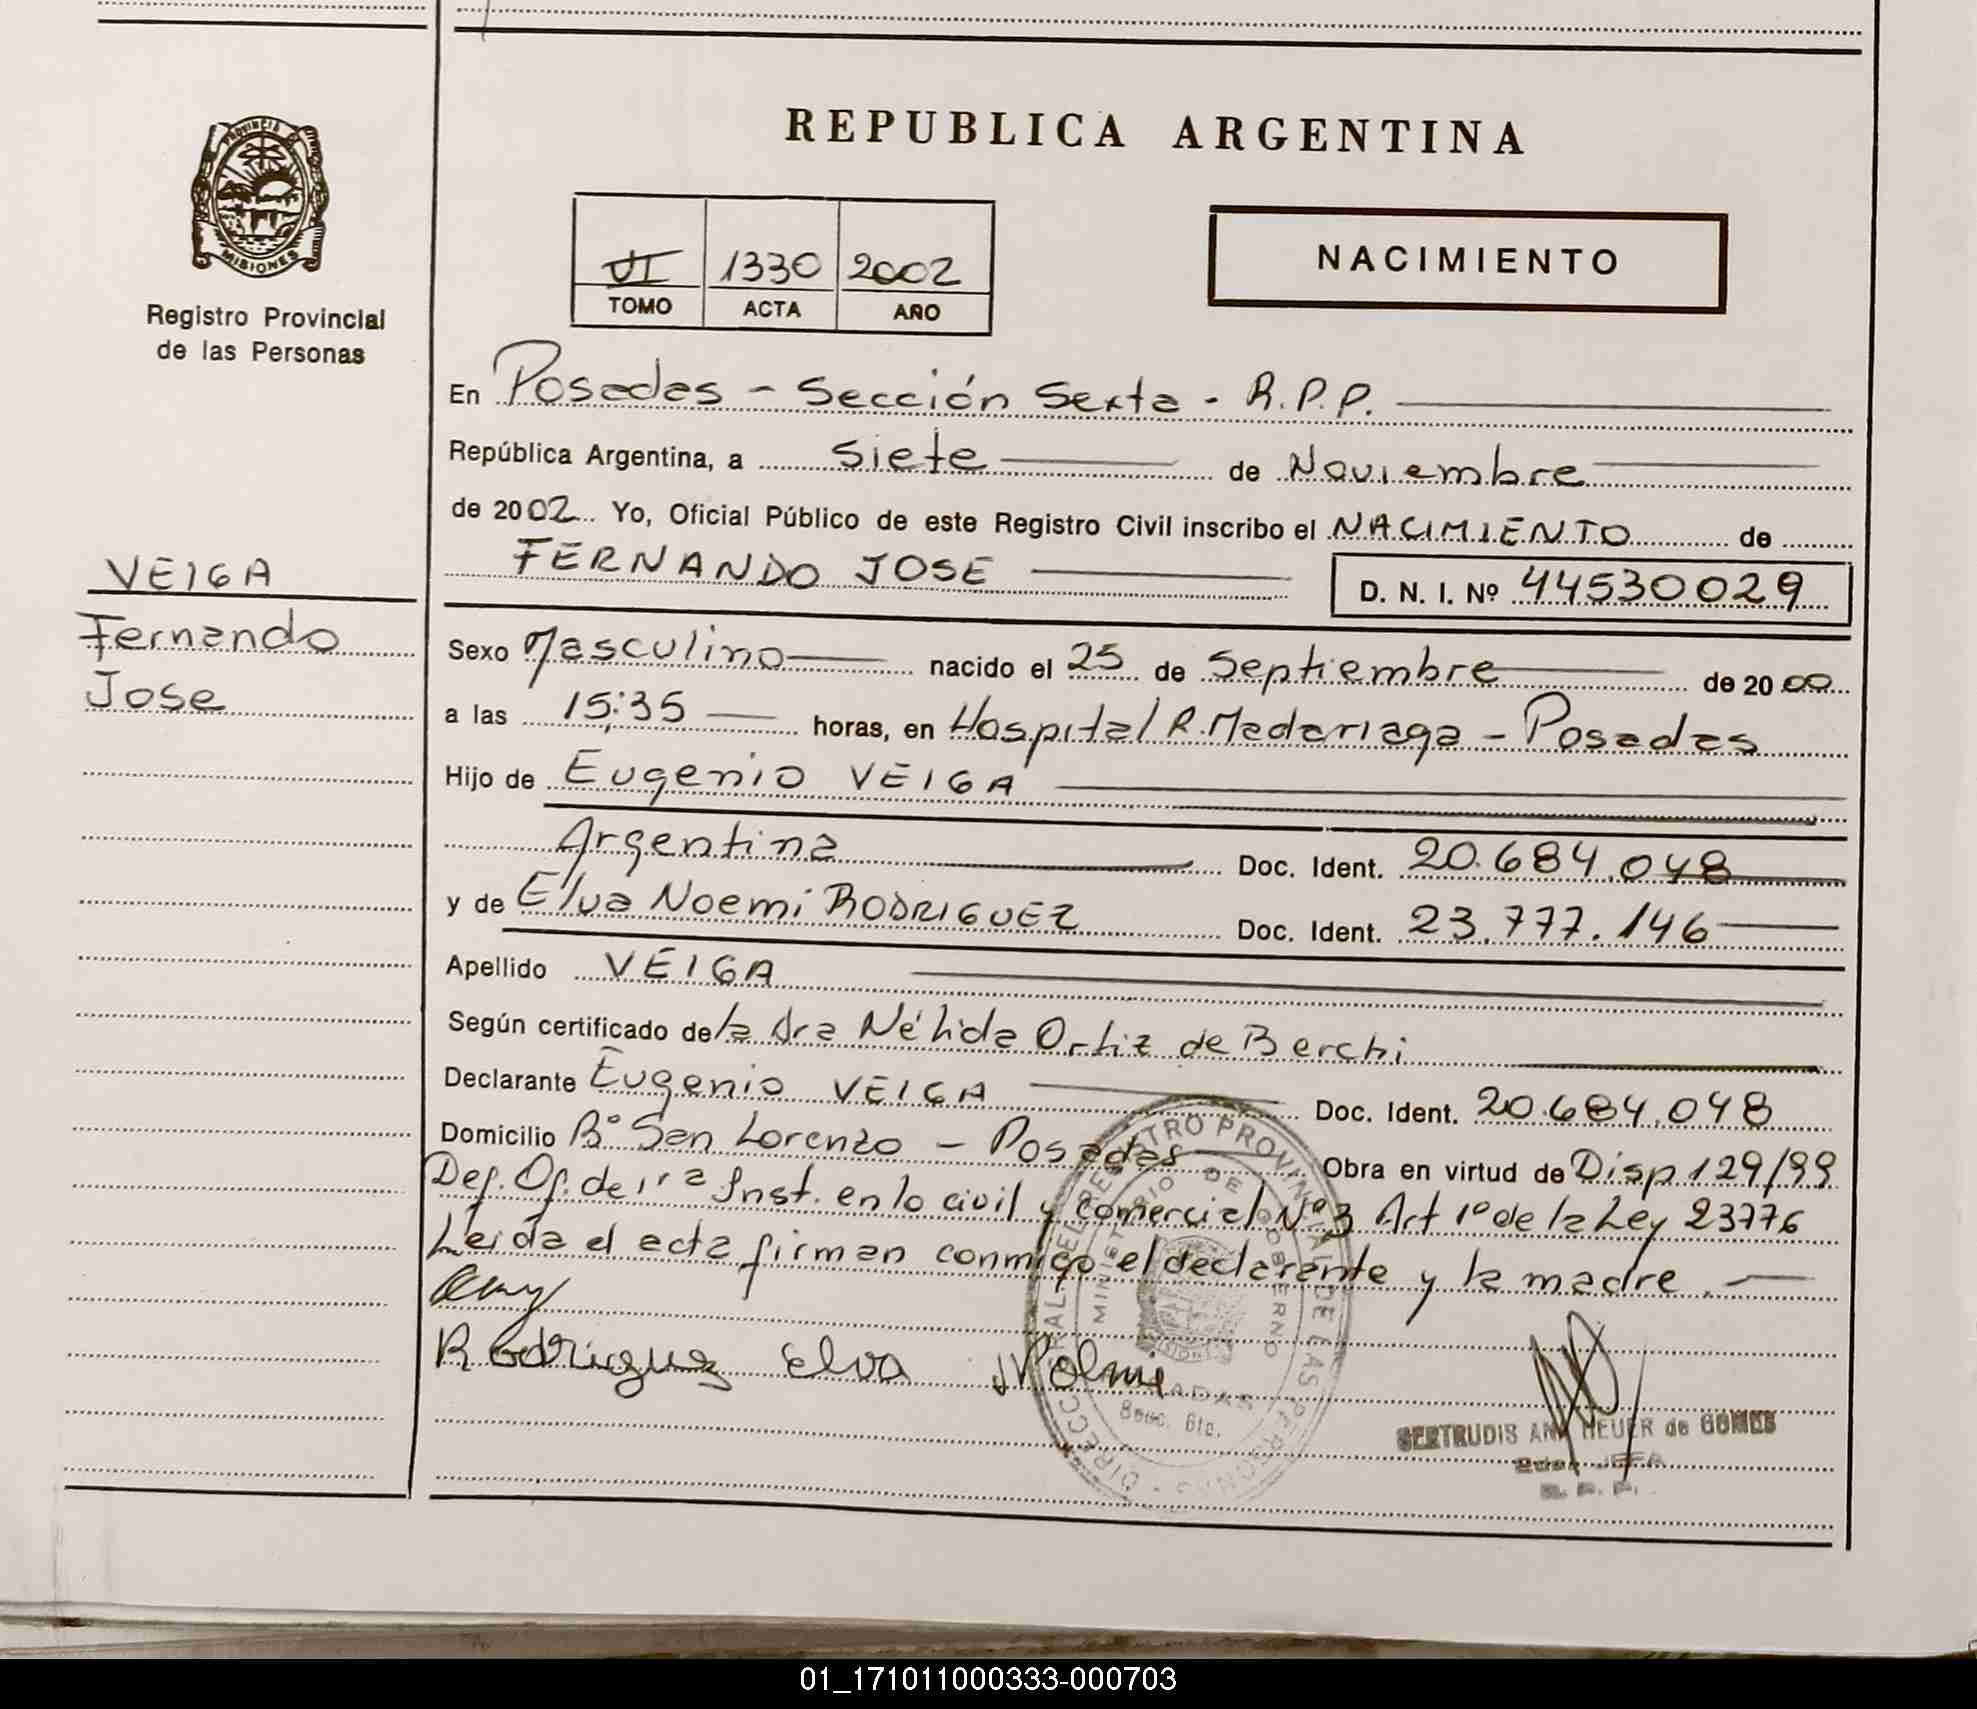 REPUBLICA ARGENTINA
PROVINCIA DE
MISIONES
Registro Provincial
de las Personas
VI 1330 2002
TOMO ACTA AÑO
NACIMIENTO
En Posadas - Sección Sexta - R.P.P.
República Argentina, a siete de Noviembre
de 2002 Yo, Oficial Público de este Registro Civil inscribo el NACIMIENTO de
FERNANDO JOSE D. N. I. Nº 44530029
VEIGA
Fernando
Jose
Sexo Masculino nacido el 25 de Septiembre de 2000
a las 15:35 horas, en Hospital R. Madariaga - Posadas
Hijo de Eugenio VEIGA
Argentina Doc. Ident. 20.684.048
y de Elva Noemi RODRIGUEZ Doc. Ident. 23.777.146
Apellido VEIGA
Según certificado de la dra Nélida Ortiz de Berchi
Declarante Eugenio VEIGA Doc. Ident. 20.684.048
Domicilio Bº San Lorenzo - Posadas Obra en virtud de Disp 129/99
Def. Of. de 1ra Inst. en lo civil y comercial Nº 3 Art 1º de la Ley 23776
Leída el acta firman conmigo el declarante y la madre.
Rodriguez Elva
DIRECC RAL EL REGISTRO PROVINCIAL DE LAS PERSONAS
MINISTERIO DE GOBIERNO
Secc. 6ta.
GERTRUDIS ANA HEUER de GOMES
JEFA
R. P. P.
01_171011000333-000703